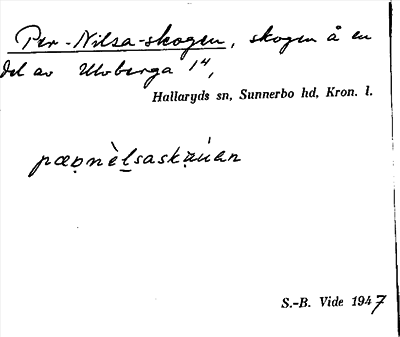 Per-Nilsa-skogen, skogen å en
del av Ulvberga 1⁴,
Hallaryds sn, Sunnerbo hd, Kron. l.
S.-B. Vide 1947